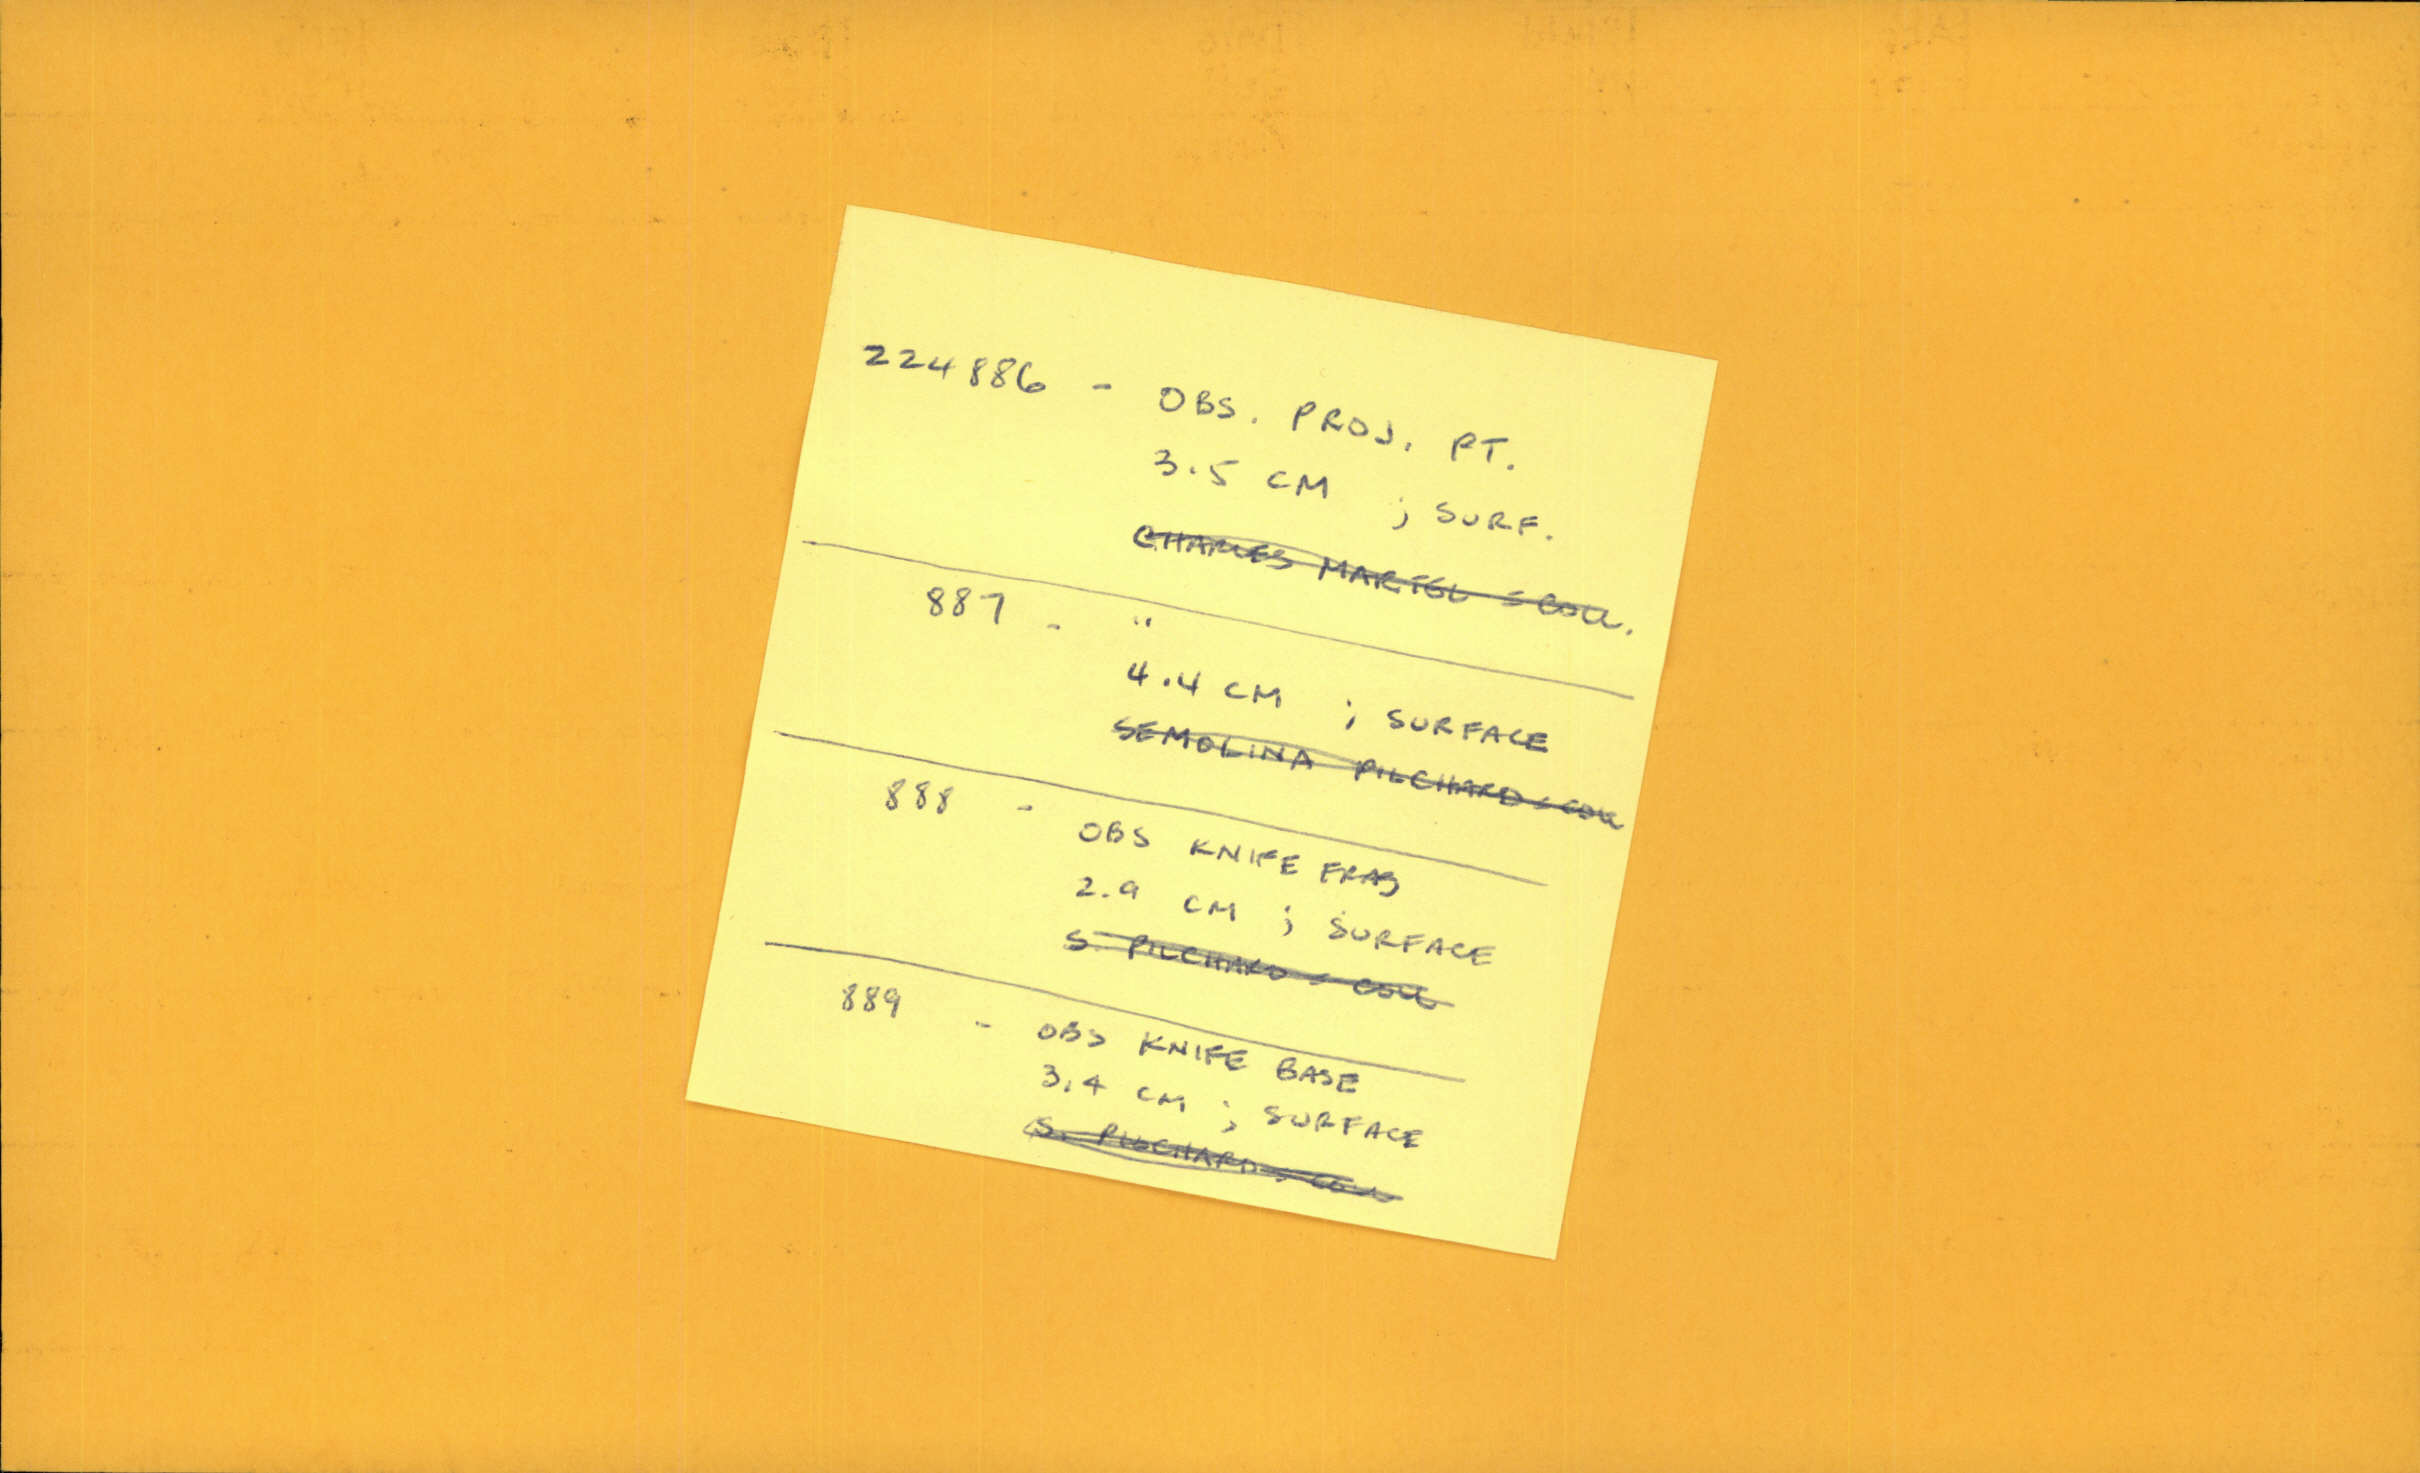 224886 - OBS. PROJ. PT.
3.5 CM ; SURF.
CHARLES MARTEL COLL.
887 - "
4.4 CM ; SURFACE
SEMOLINA PILCHARD COLL
888 - OBS KNIFE FRAG
2.9 CM ; SURFACE
S. PILCHARD COLL
889 - OBS KNIFE BASE
3.4 CM ; SURFACE
S. PILCHARD COLL